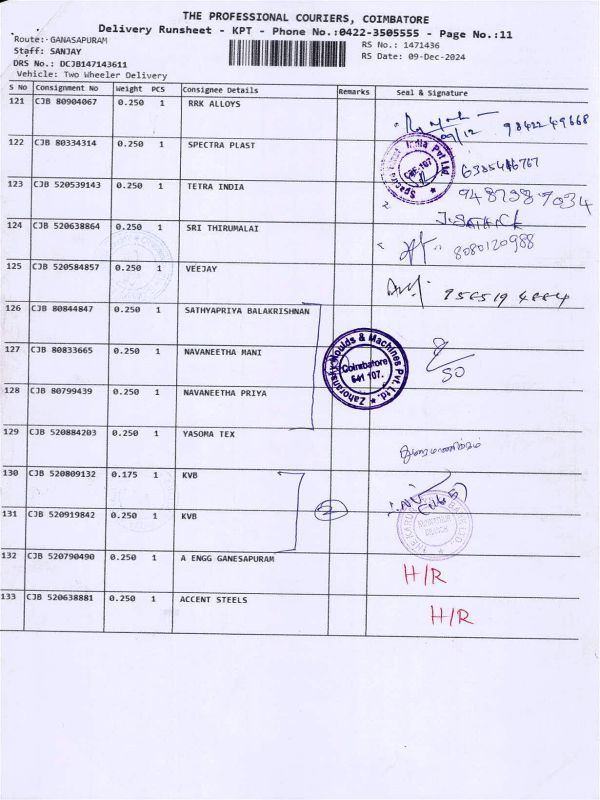 THE PROFESSIONAL COURIERS, COIMBATORE
Delivery Runsheet - KPT - Phone No.:0422-3505555 - Page No.:11
Route: GANASAPURAM
Staff: SANJAY
DRS No.: DCJB147143611
Vehicle: Two Wheeler Delivery
RS No.: 1471436
RS Date: 09-Dec-2024
S No Consignment No Weight PCS Consignee Details Remarks Seal & Signature
121 CJB 80904067 0.250 1 RRK ALLOYS 09/12 98422 49668
122 CJB 80334314 0.250 1 SPECTRA PLAST
Spectra Plast India Pvt Ltd
CBE-107
123 CJB 520539143 0.250 1 TETRA INDIA
124 CJB 520638864 0.250 1 SRI THIRUMALAI 8080120988
125 CJB 520584857 0.250 1 VEEJAY
126 CJB 80844847 0.250 1 SATHYAPRIYA BALAKRISHNAN
127 CJB 80833665 0.250 1 NAVANEETHA MANI
Zahoransky Moulds & Machines Pvt. Ltd.
Coimbatore
641 107.
128 CJB 80799439 0.250 1 NAVANEETHA PRIYA
129 CJB 520884203 0.250 1 YASOMA TEX
130 CJB 520809132 0.175 1 KVB
131 CJB 520919842 0.250 1 KVB 2
132 CJB 520790490 0.250 1 A ENGG GANESAPURAM H/R
133 CJB 520638881 0.250 1 ACCENT STEELS H/R